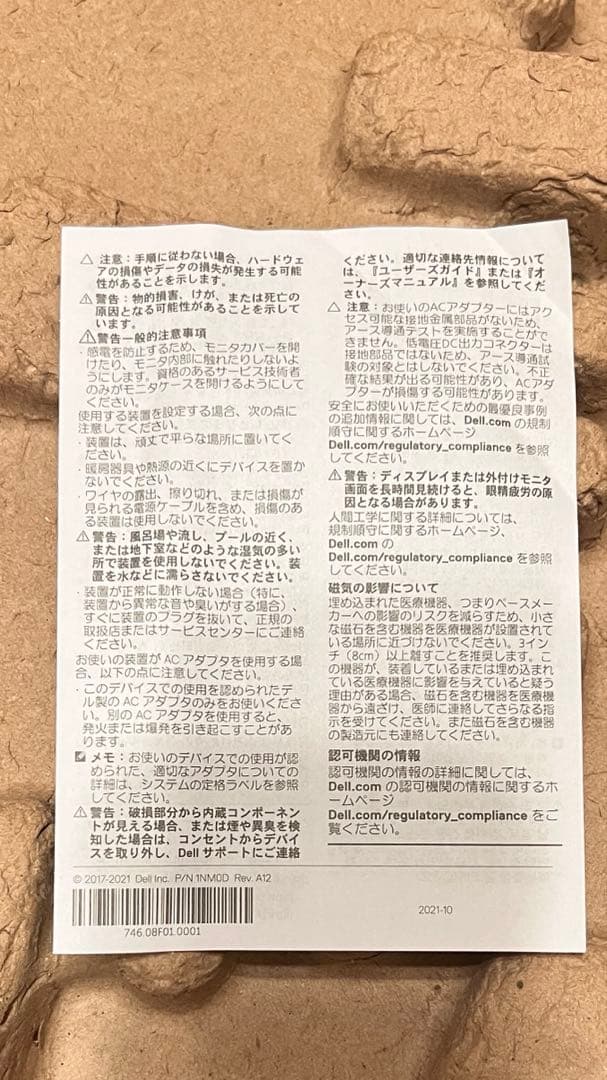 ⚠ 注意：手順に従わない場合、ハードウェ
アの損傷やデータの損失が発生する可能
性があることを示します。
⚠ 警告：物的損害、けが、または死亡の
原因となる可能性があることを示して
います。
⚠警告一般的注意事項
・感電を防止するため、モニタカバーを開
けたり、モニタ内部に触れたりしないよ
うにします。資格のあるサービス技術者
のみがモニタケースを開けるようにして
ください。
使用する装置を設定する場合、次の点に
注意してください。
・装置は、頑丈で平らな場所に置いてく
ださい。
・暖房器具や熱源の近くにデバイスを置か
ないでください。
・ワイヤの露出、擦り切れ、または損傷が
見られる電源ケーブルを含め、損傷のあ
る装置は使用しないでください。
⚠ 警告：風呂場や流し、プールの近く、
または地下室などのような湿気の多い
所で装置を使用しないでください。装
置を水などに濡らさないでください。
・装置が正常に動作しない場合（特に、
装置から異常な音や臭いがする場合）、
すぐに装置のプラグを抜いて、正規の
取扱店またはサービスセンターにご連絡
ください。
お使いの装置が AC アダプタを使用する場
合、以下の点に注意してください。
・このデバイスでの使用を認められたデ
ル製の AC アダプタのみをお使いくださ
い。別の AC アダプタを使用すると、
発火または爆発を引き起こすことがあ
ります。
メモ：お使いのデバイスでの使用が認
められた、適切なアダプタについての
詳細は、システムの定格ラベルを参照
してください。
⚠ 警告：破損部分から内蔵コンポーネン
トが見える場合、または煙や異臭を検
知した場合は、コンセントからデバイ
スを取り外し、Dell サポートにご連絡
ください。適切な連絡先情報について
は、『ユーザーズガイド』または『オ
ーナーズマニュアル』を参照してくださ
い。
⚠ 注意：お使いのACアダプターにはアク
セス可能な接地金属部品がないため、
アース導通テストを実施することがで
きません。低電圧DC出力コネクターは
接地部品ではないため、アース導通試
験の対象とはしないでください。不正
確な結果が出る可能性があり、ACアダ
プターが損傷する可能性があります。
安全にお使いいただくための最優良事例
の追加情報に関しては、Dell.com の規制
順守に関するホームページ
Dell.com/regulatory_compliance を参照
してください。
⚠ 警告：ディスプレイまたは外付けモニタ
画面を長時間見続けると、眼精疲労の原
因となる場合があります。
人間工学に関する詳細については、
規制順守に関するホームページ、
Dell.com の
Dell.com/regulatory_compliance を参照
してください。
磁気の影響について
埋め込まれた医療機器、つまりペースメー
カーへの影響のリスクを減らすため、小さ
な磁石を含む機器を医療機器が設置されて
いる場所に近づけないでください。3イン
チ（8cm）以上離すことを推奨します。こ
の機器が、装着しているまたは埋め込まれ
ている医療機器に影響を与えていると疑う
理由がある場合、磁石を含む機器を医療機
器から遠ざけ、医師に連絡してさらなる指
示を受けてください。また磁石を含む機器
の製造元にも連絡してください。
認可機関の情報
認可機関の情報の詳細に関しては、
Dell.com の認可機関の情報に関するホ
ームページ
Dell.com/regulatory_compliance をご
覧ください。
© 2017-2021 Dell Inc. P/N 1NM0D Rev. A12
746.08F01.0001
2021-10